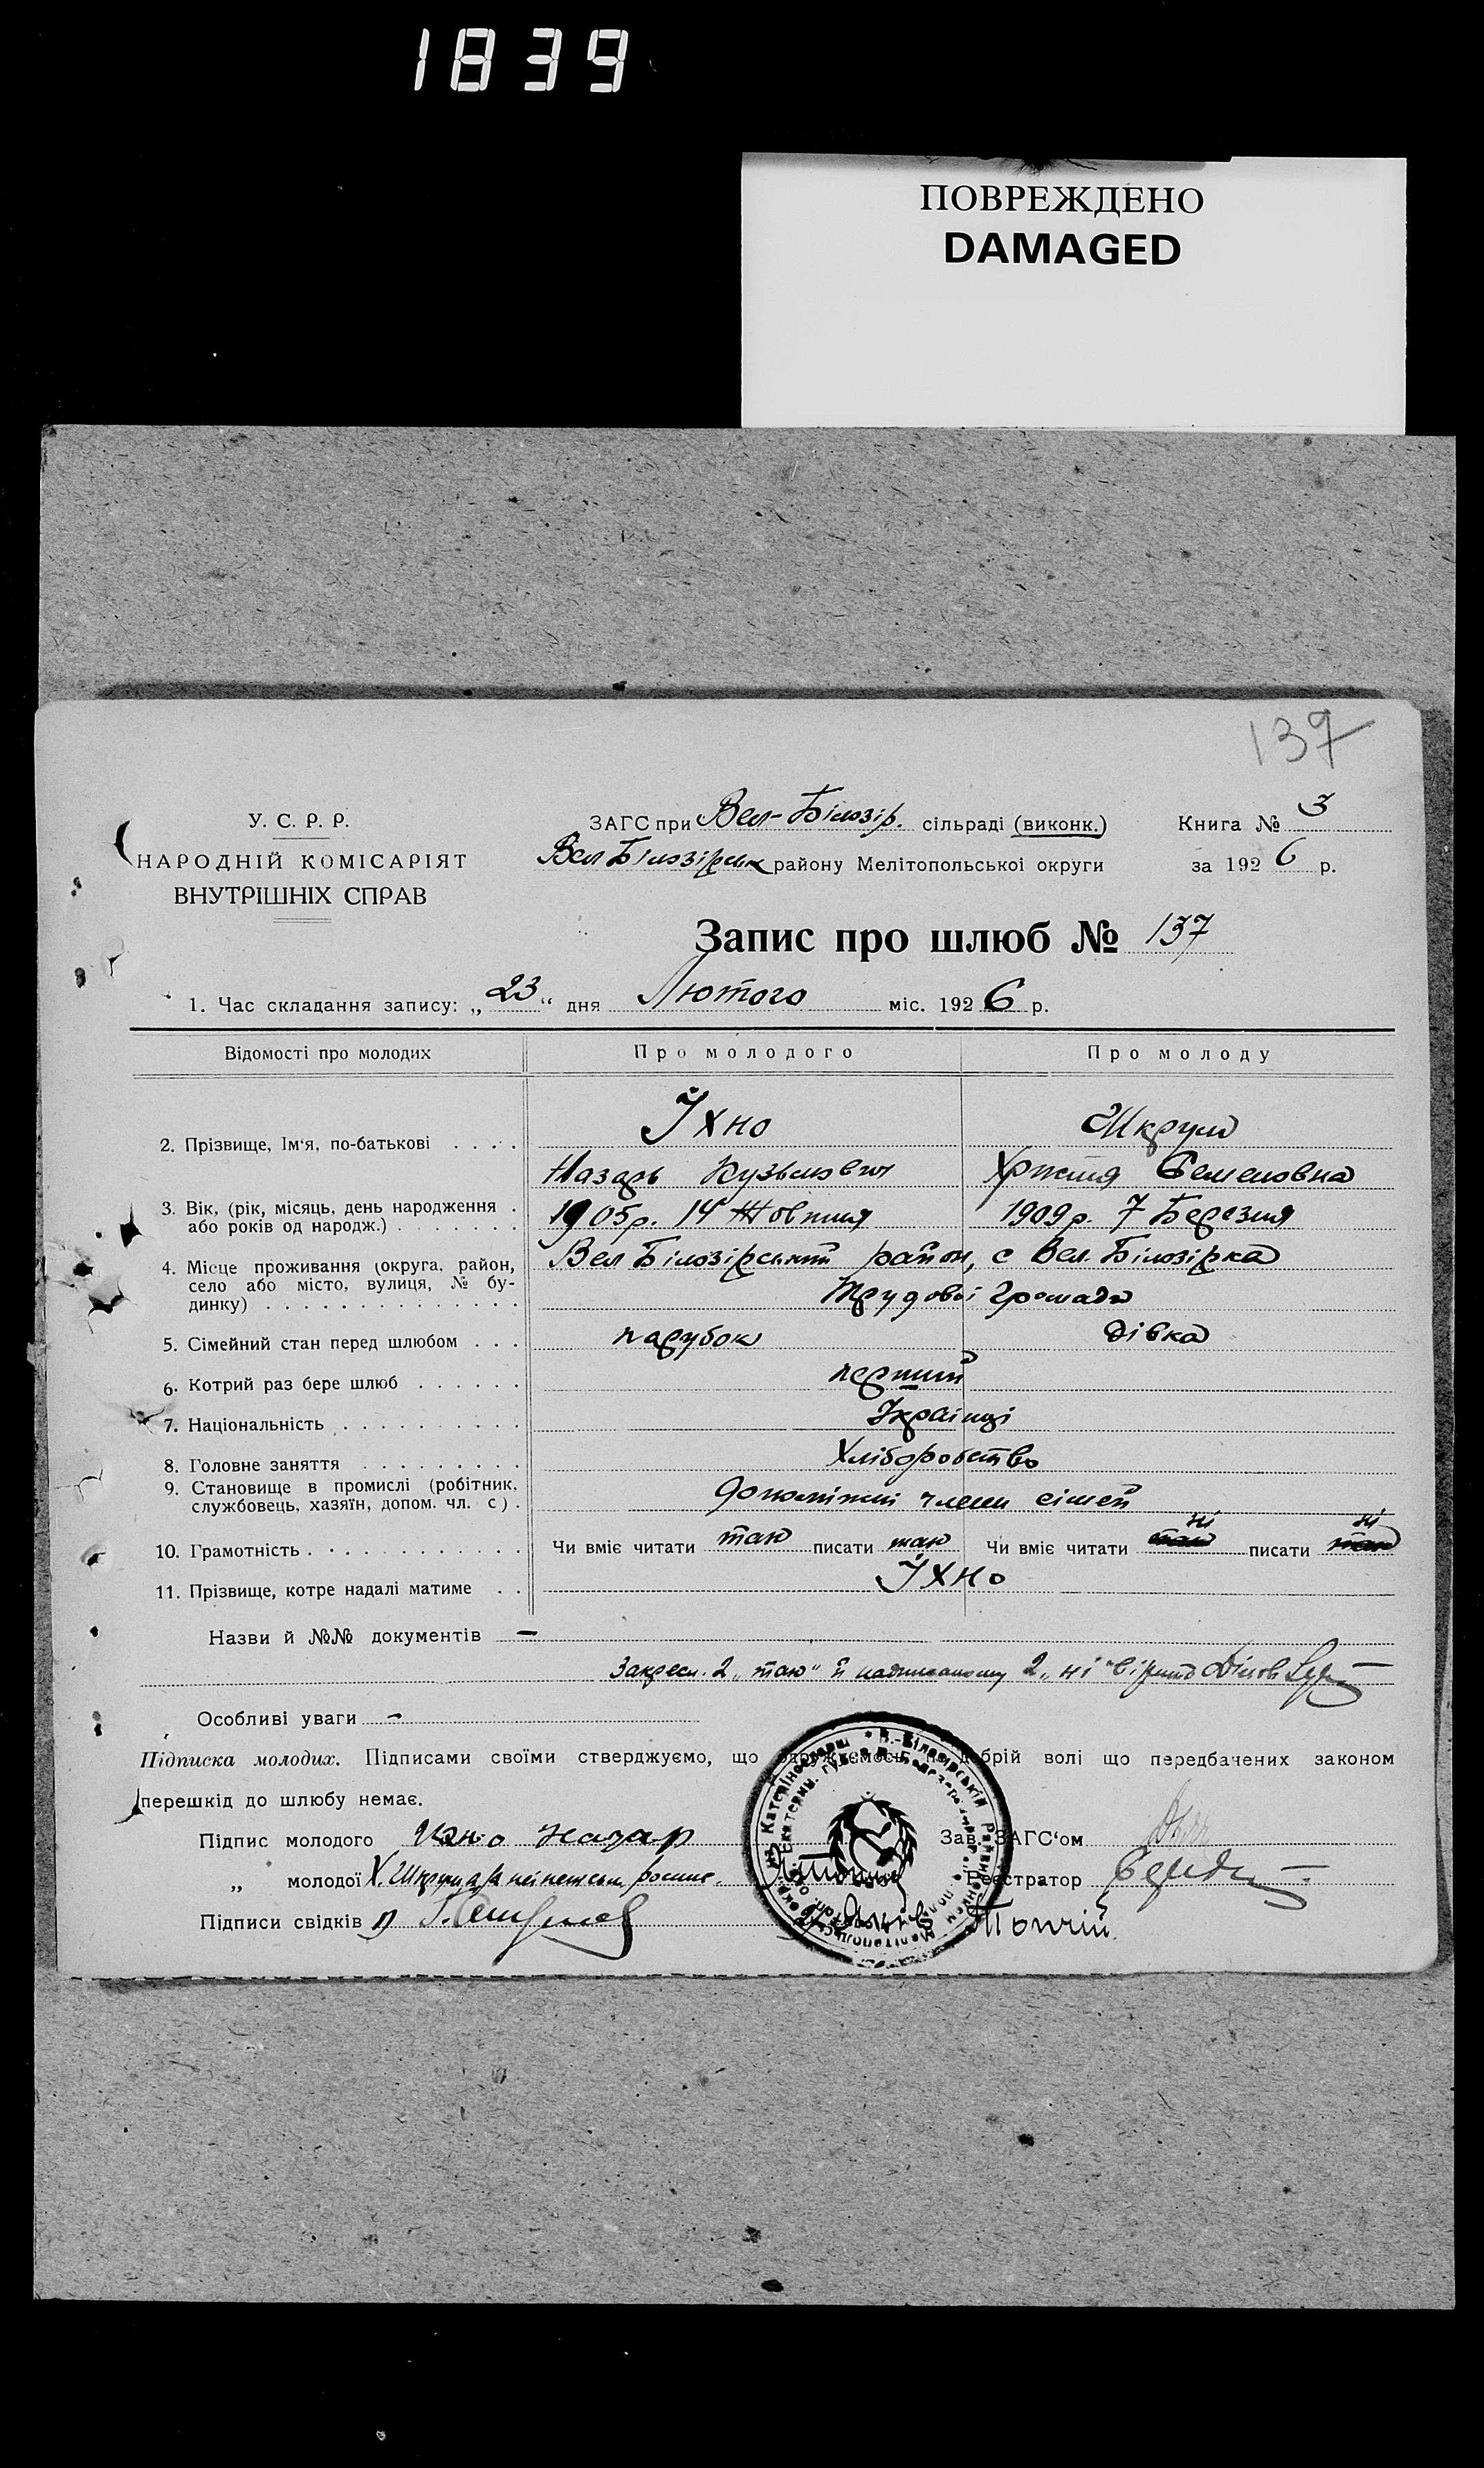 1839
ПОВРЕЖДЕНО
DAMAGED
137
У. С. Р. Р.
НАРОДНІЙ КОМІСАРІЯТ
ВНУТРІШНІХ СПРАВ
ЗАГС при Вел-Білозір. сільраді (виконк.)
Вел Білозірськ району Мелітопольської округи
Книга № 3
за 1926 р.
Запис про шлюб № 137
1. Час складання запису: „23“ дня Лютого міс. 1926 р.
Відомості про молодих
Про молодого
Про молоду
2. Прізвище, Ім‘я, по-батькові . . . .
Їхно
Назарь Кузьмович
Шкрум
Христя Семеновна
3. Вік, (рік, місяць, день народження .
або років од народж.) . . . . . . .
1905р. 14 Жовтня
1909р. 7 Березня
4. Місце проживання (округа, район,
село або місто, вулиця, № бу-
динку) . . . . . . . . . . . . . .
Вел Білозірський район, с Вел. Білозірка
Трудової Громади
5. Сімейний стан перед шлюбом . . .
парубок
дівка
6. Котрий раз бере шлюб . . . . . .
перший
7. Національність . . . . . . . . . .
Українці
8. Головне заняття . . . . . . . . .
Хліборобство
9. Становище в промислі (робітник,
службовець, хазяїн, допом. чл. с) .
допоміжні члени сімей
10. Грамотність . . . . . . . . . . . .
Чи вміє читати так писати так
Чи вміє читати так ні писати так ні
11. Прізвище, котре надалі матиме . .
Їхно
Назви й №№ документів —
Закресл. 2 „так“ й надписаному 2 „ні“ вірить
Особливі уваги —
Підписка молодих. Підписами своїми стверджуємо, що одружуємось по добрій волі що передбачених законом
перешкід до шлюбу немає.
Підпис молодого Ихно Назар
Зав. ЗАГС‘ом
„ молодої Х. Шкрум
Реєстратор
Підписи свідків